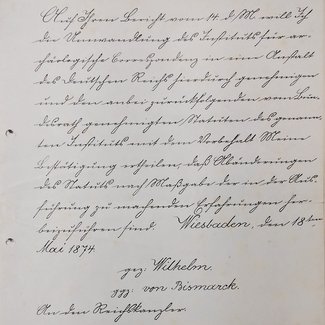 Auf Ihren Bericht vom 14. d. M. will Ich
die Umwandlung des Instituts für ar-
chäologische Correspondenz in eine Anstalt
des deutschen Reichs hierdurch genehmigen
und den anbei zurückfolgenden vom Bun-
desrath genehmigten Statuten des genann-
ten Instituts mit dem Vorbehalt Meine
Bestätigung ertheilen, daß Abänderungen
des Statuts nach Maßgabe der in der Aus-
führung zu machenden Erfahrungen her-
beizuführen sind. Wiesbaden, den 18ten
Mai 1874.
gez: Wilhelm.
ggz: von Bismarck.
An den Reichskanzler.